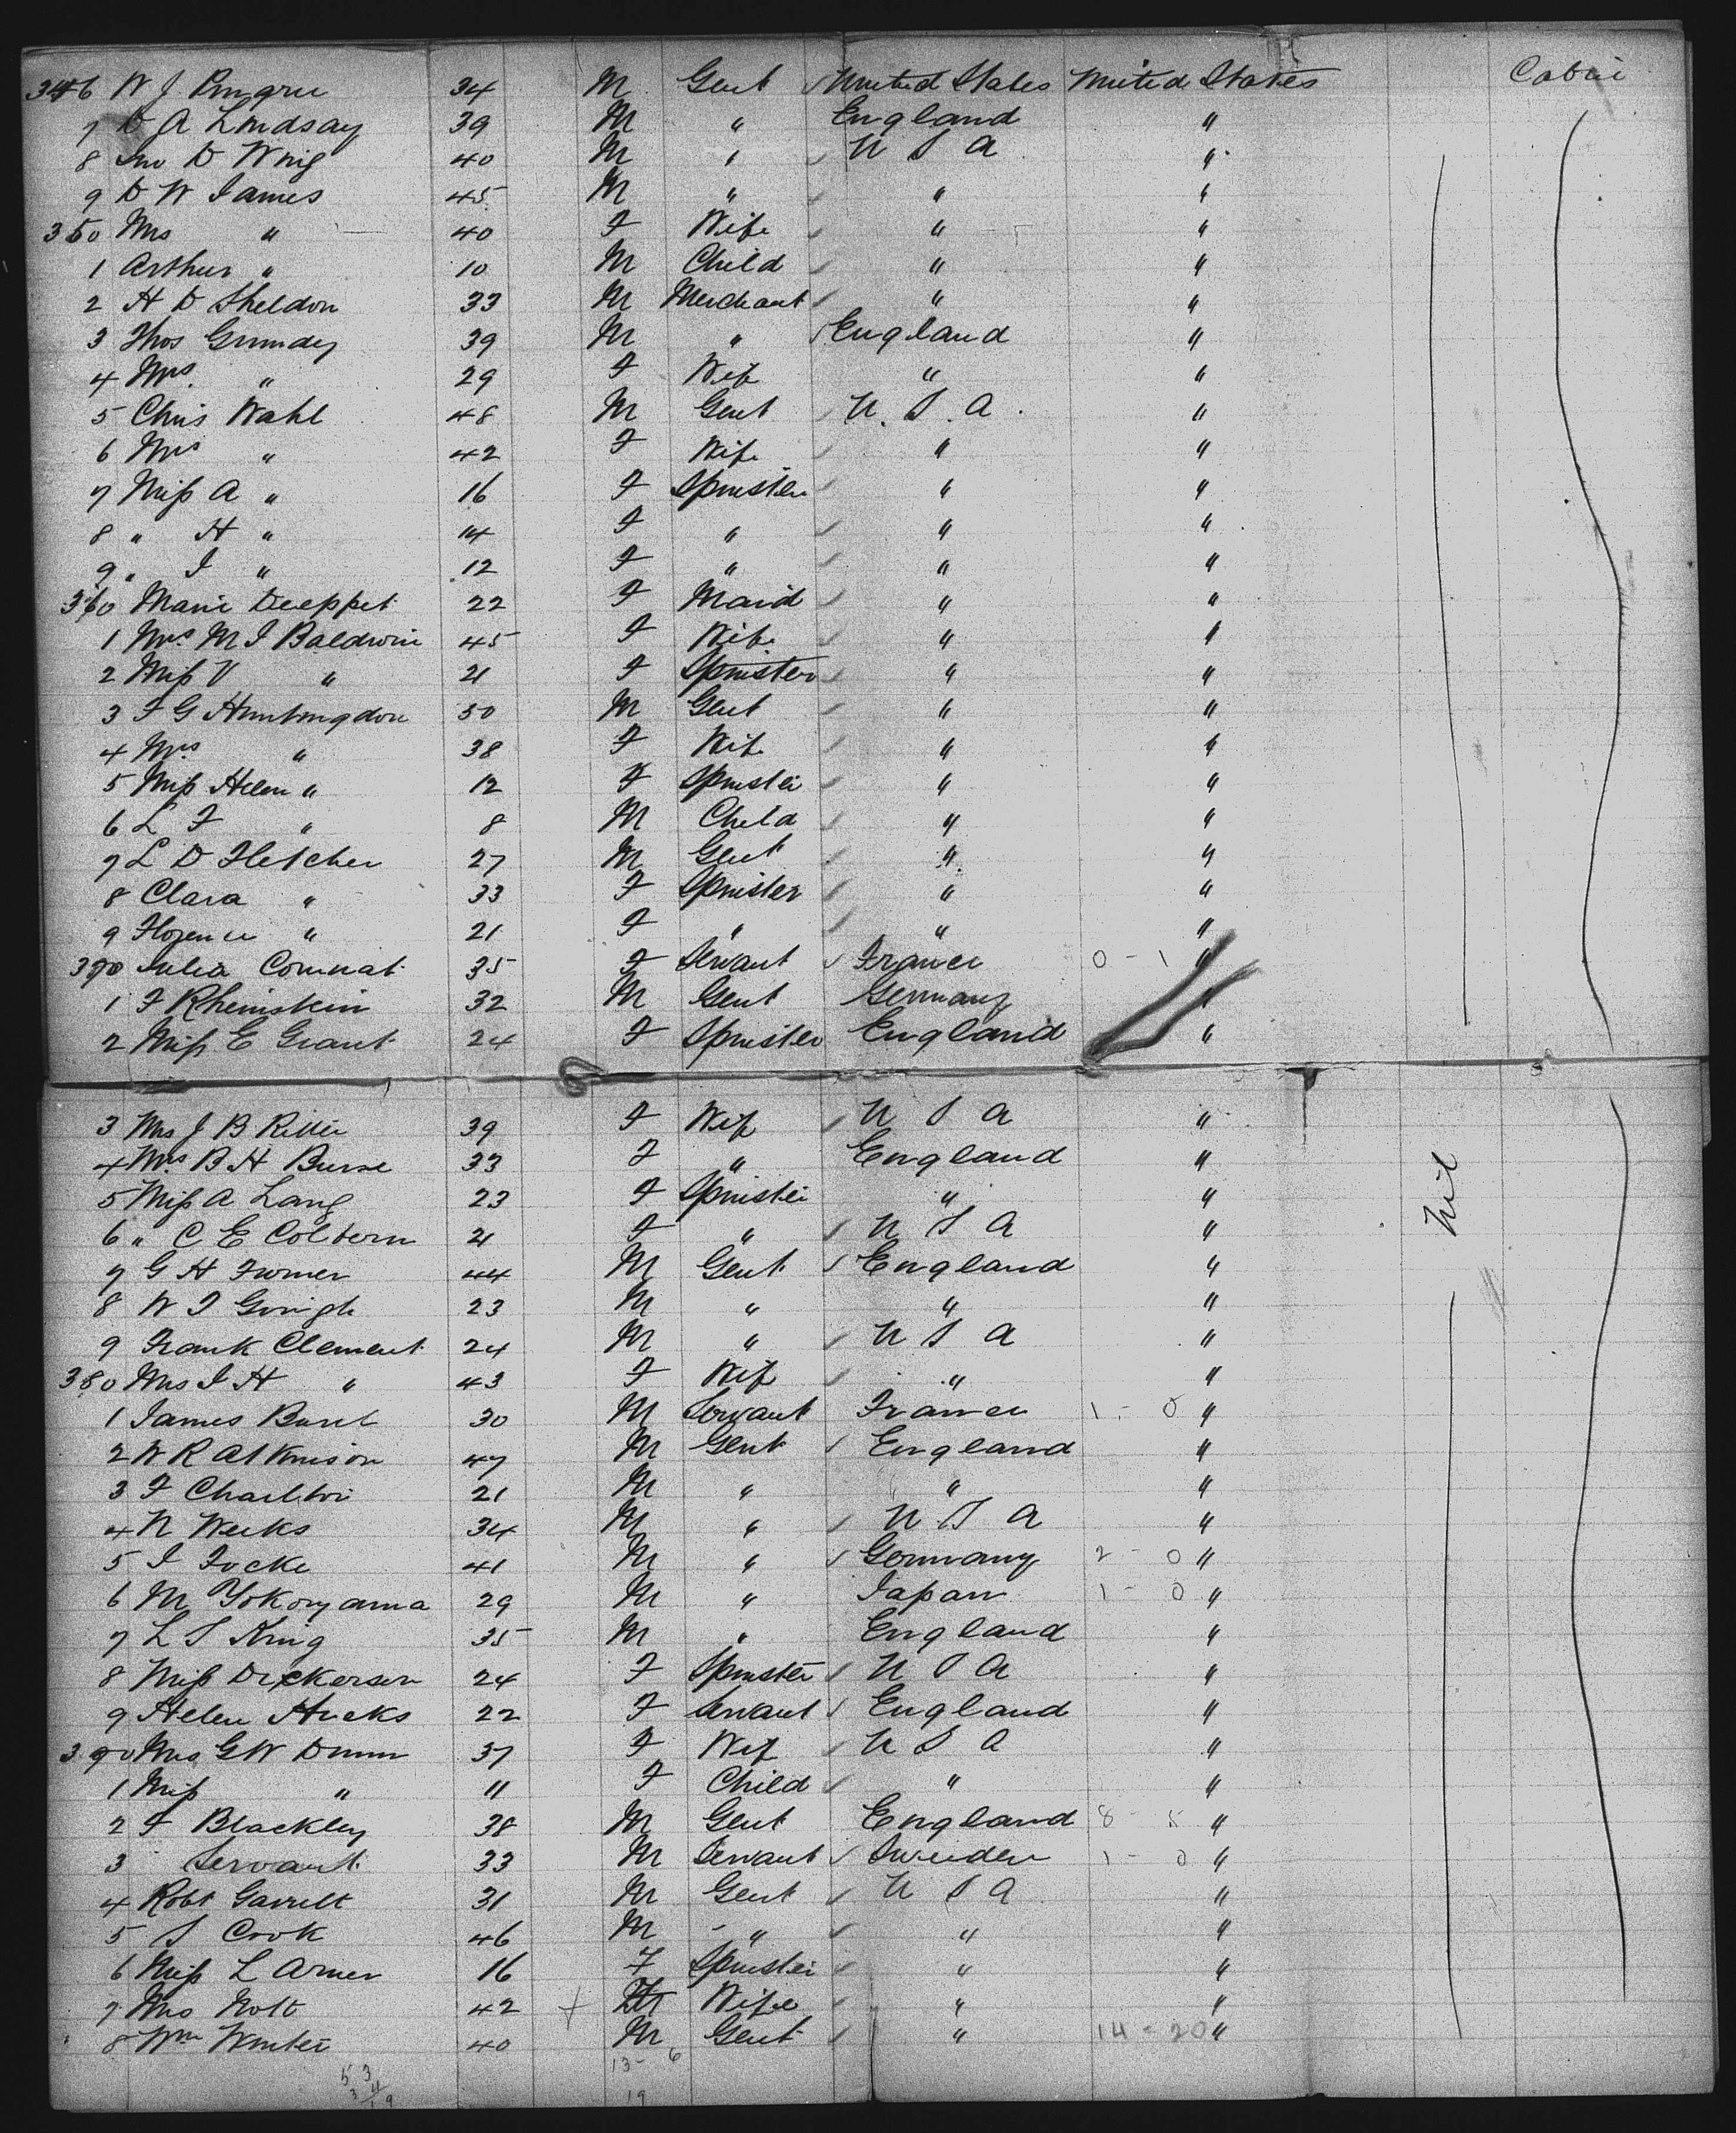 346 W J Pingru 34 M Gent United States United States Cabin
7 D A Lindsay 39 M " England "
8 Jno D Wing 40 M " U S A "
9 D W James 45 M " " "
350 Mrs " 40 F Wife " "
1 Arthur " 10 M Child " "
2 H D Sheldon 33 M Merchant " "
3 Thos Grundy 39 M " England "
4 Mrs " 29 F Wife " "
5 Chris Wahl 48 M Gent U. S. A. "
6 Mrs " 42 F Wife " "
7 Miss A " 16 F Spinster " "
8 " H " 14 F " " "
9 " J " 12 F " " "
360 Marie 22 F Maid " "
1 Mrs M J Baldwin 45 F Wife " "
2 Miss V " 21 F Spinster " "
3 F G Huntingdon 50 M Gent " "
4 Mrs " 38 F Wife " "
5 Miss Helen " 12 F Spinster " "
6 L F " 8 M Child " "
7 L D Fletcher 27 M Gent " "
8 Clara " 33 F Spinster " "
9 Florence " 21 F " " "
370 Julia 35 F Servant France 0 - 1 "
1 F Rheinstein 32 M Gent Germany "
2 Miss E Grant 24 F Spinster England "
3 Mrs J B 39 F Wife U S A "
4 Mrs B H 33 F " England "
5 Miss A Lang 23 F Spinster " " Nil
6 " C E Colborn 21 F " U S A "
7 G H 44 M Gent England "
8 W J Gough 23 M " " "
9 Frank Clement 24 M " U S A "
380 Mrs J H " 43 F Wife " "
1 James 30 M Servant France 1 - 0 "
2 W R Atkinson 47 M Gent England "
3 F Charlton 21 M " " "
4 N Weeks 34 M " U S A "
5 J Focke 41 M " Germany 2 - 0 "
6 M Yokoyama 29 M " Japan 1 - 0 "
7 L S King 35 M " England "
8 Miss Dickerson 24 F Spinster U S A "
9 Helen Hicks 22 F Servant England "
390 Mrs G W Dunn 37 F Wife U S A "
1 Miss " 11 F Child " "
2 F Blackley 38 M Gent England 8 - 5 "
3 Servant 33 M Servant Sweden 1 - 0 "
4 Robt Garrett 31 M Gent U S A "
5 S Cook 46 M " " "
6 Miss L Armer 16 F Spinster " "
7 Mrs Nott 42 F Wife " "
8 Wm Winter 40 M Gent " 14 - 20 "
13 - 6
19